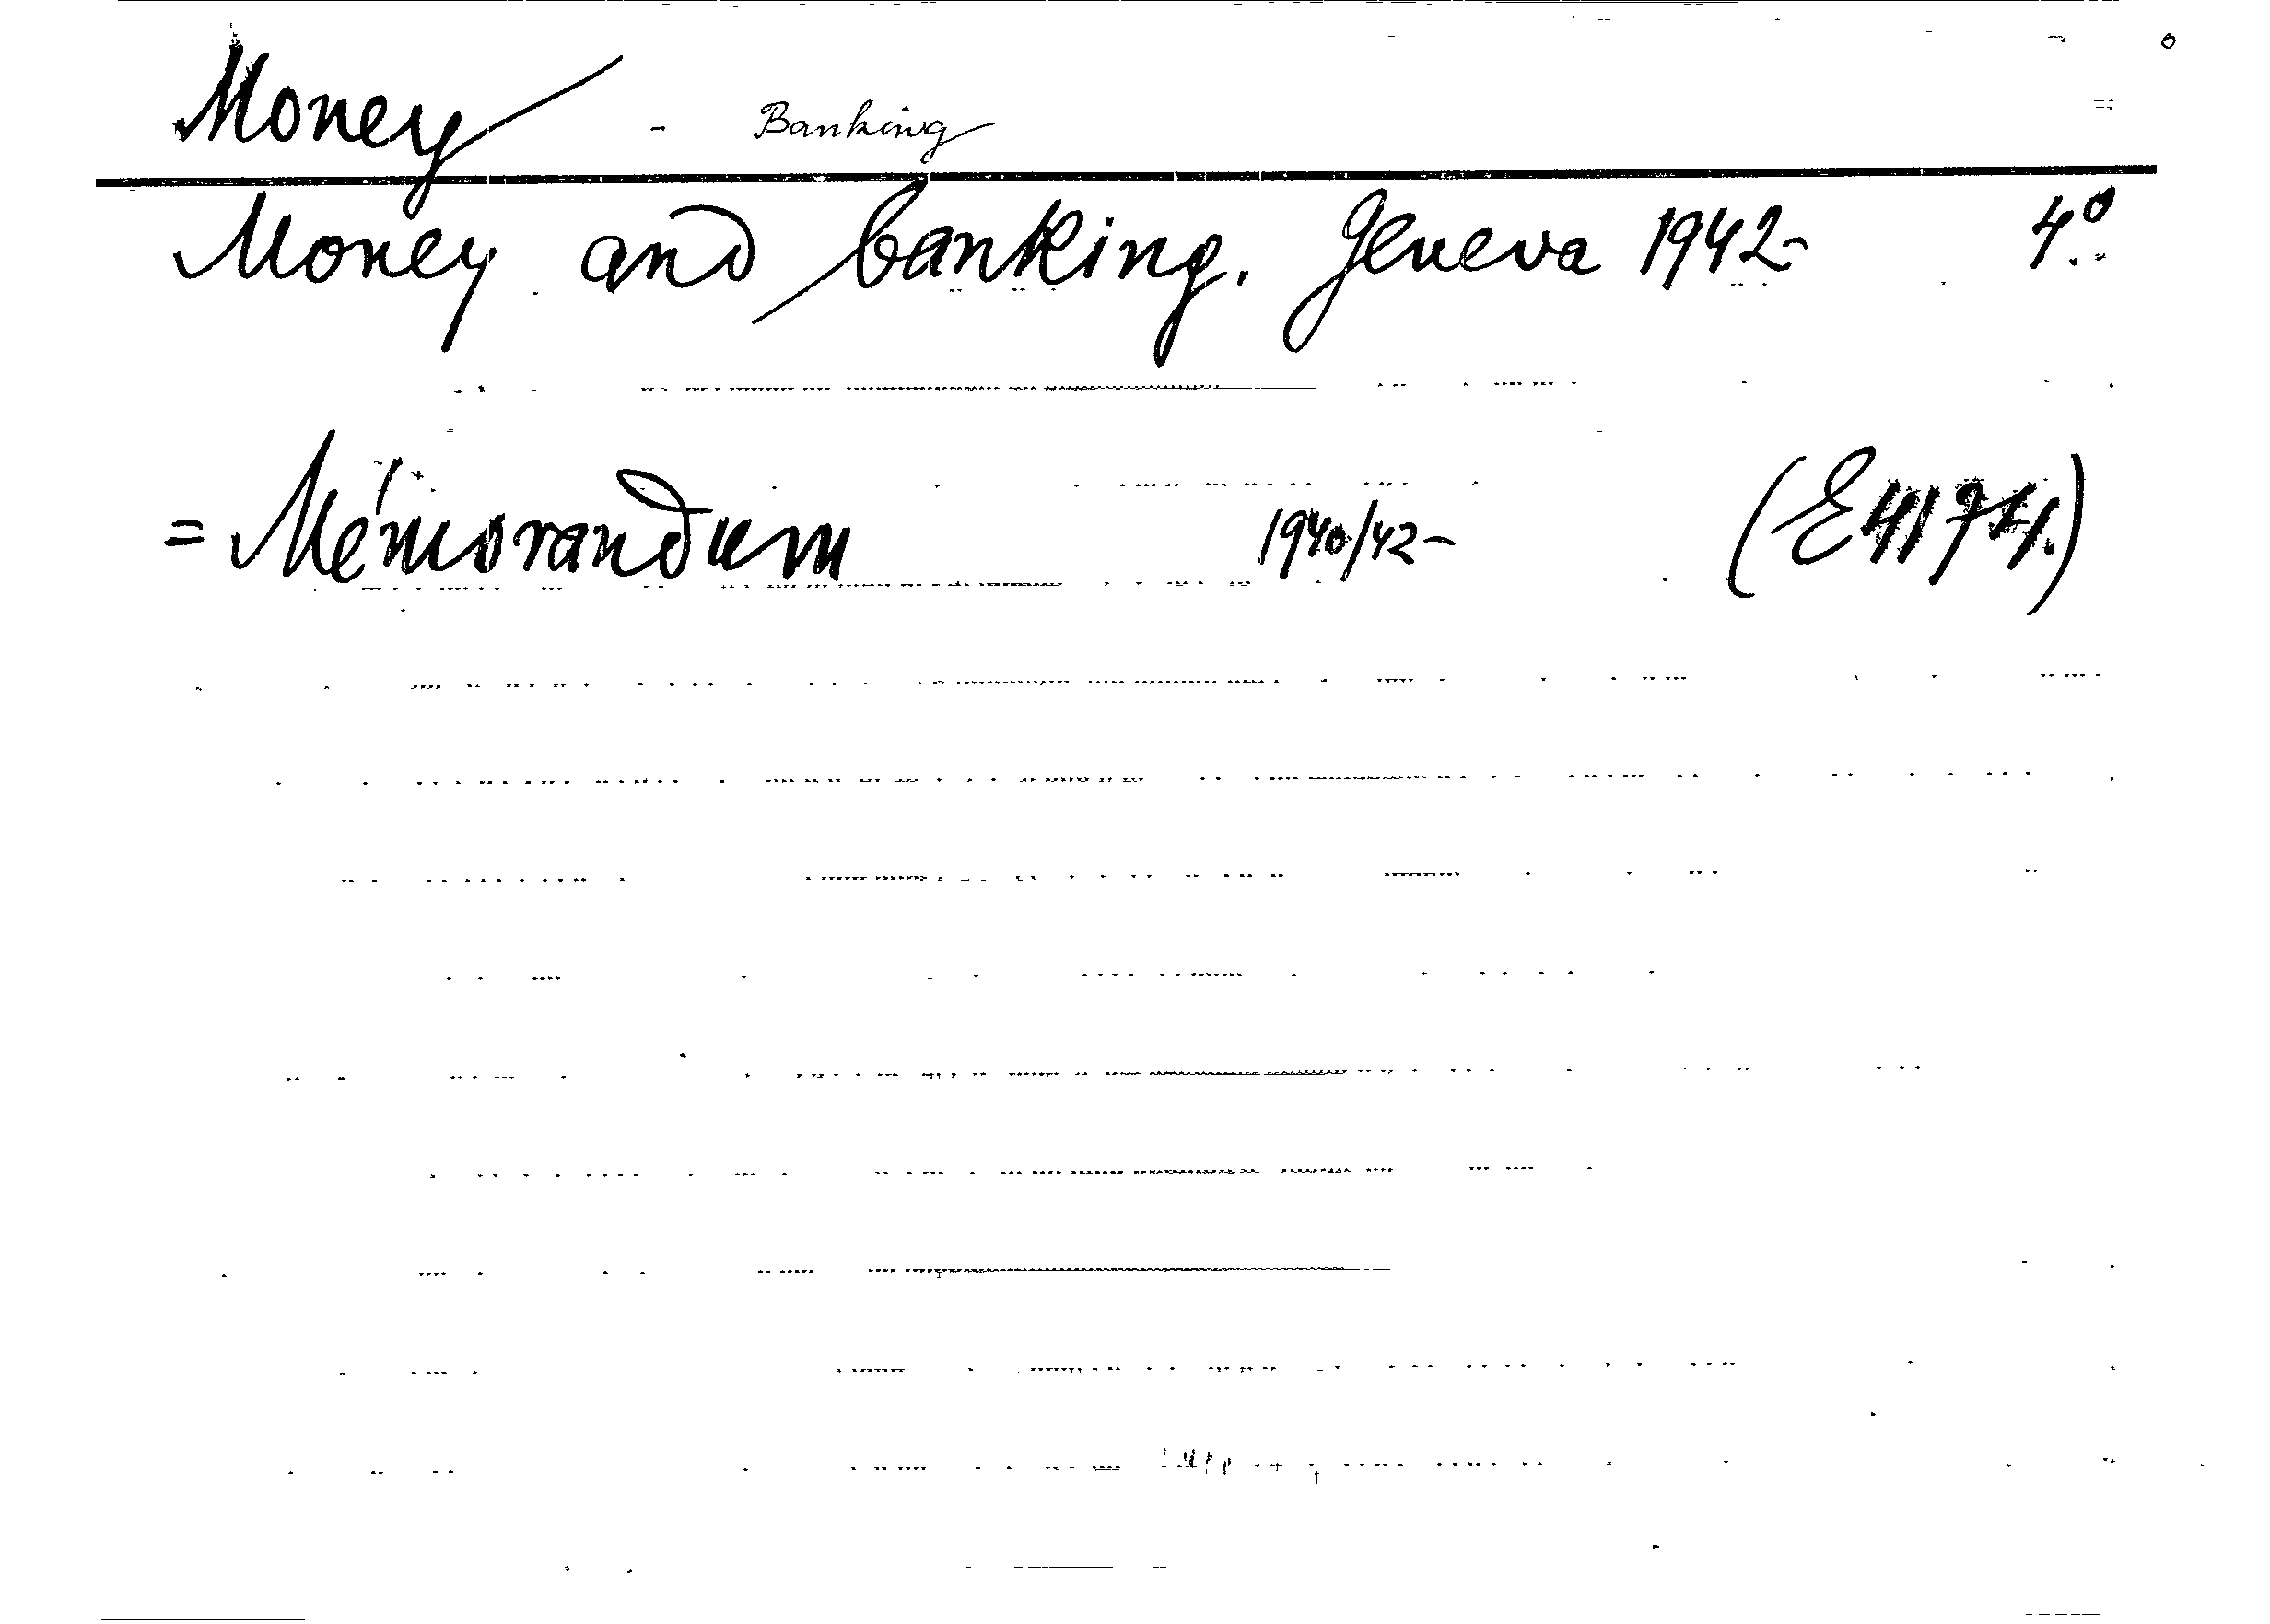 Money - Banking
Money and banking. Geneva 1942- 4º.
= Mémorandum 1940/42- (E41974.)